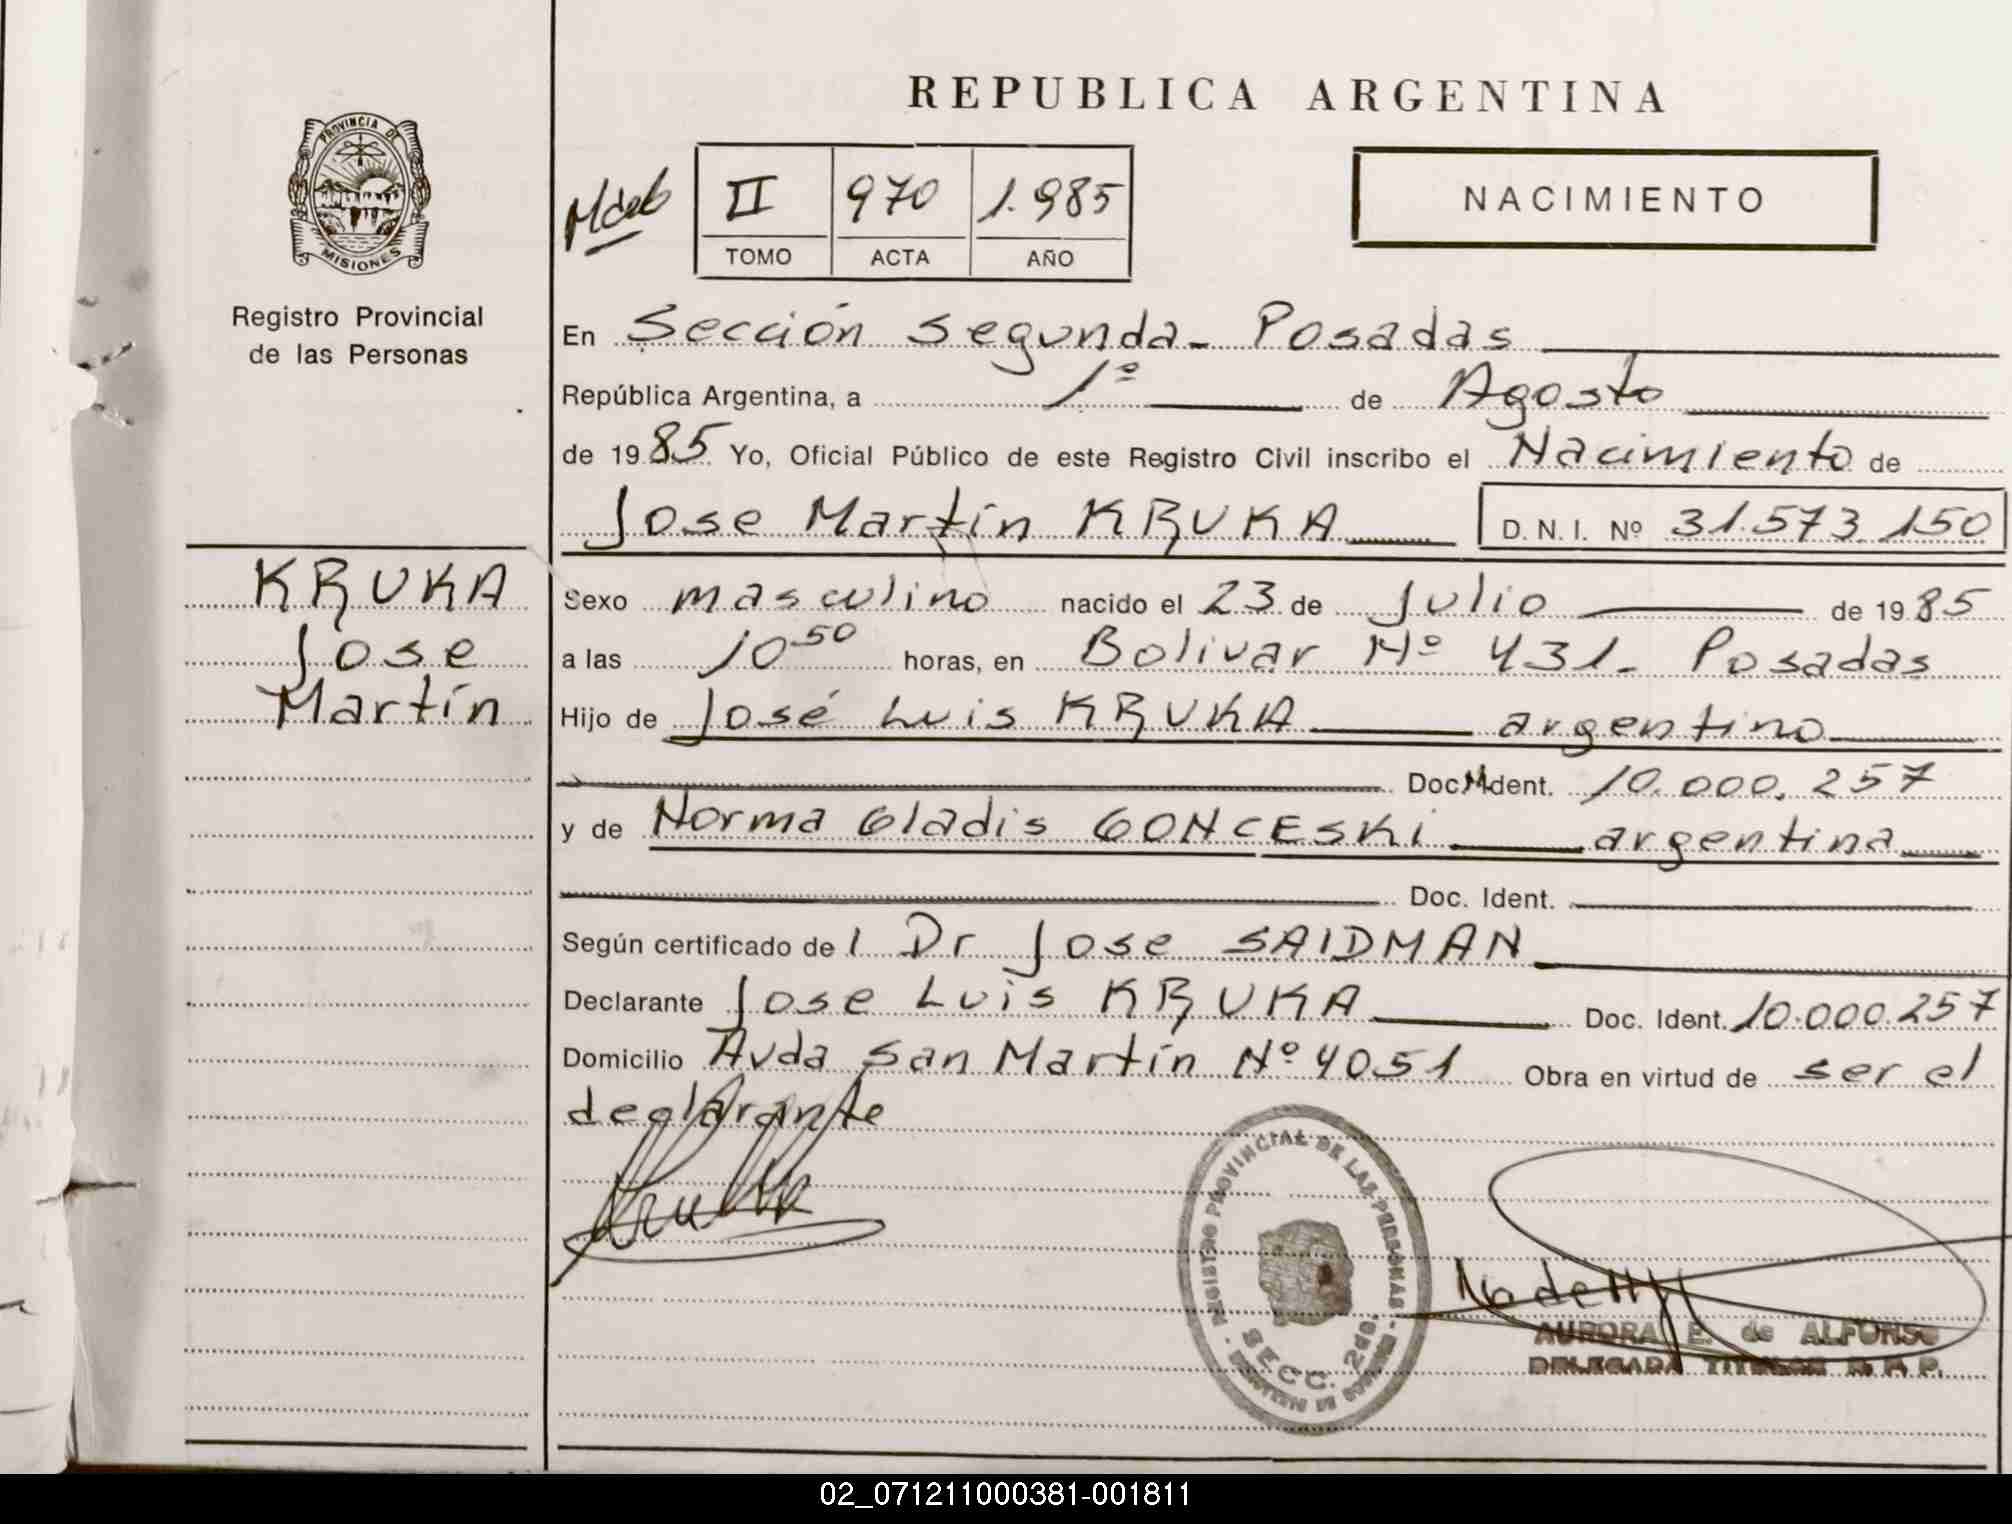 REPUBLICA ARGENTINA
PROVINCIA DE
MISIONES
Registro Provincial
de las Personas
II 970 1.985
TOMO ACTA AÑO
NACIMIENTO
En Sección Segunda - Posadas
República Argentina, a 1º de Agosto
de 1985 Yo, Oficial Público de este Registro Civil inscribo el Nacimiento de
Jose Martín KRUKA D. N. I. Nº 31.573.150
KRUKA
Jose
Martín
Sexo masculino nacido el 23 de Julio de 1985
a las 10 50 horas, en Bolivar Nº 431- Posadas
Hijo de José Luis KRUKA argentino
Doc. M Ident. 10.000.257
y de Norma Gladis GONCESKI argentina
Doc. Ident.
Según certificado de l Dr Jose SAIDMAN
Declarante Jose Luis KRUKA Doc. Ident. 10.000.257
Domicilio Avda San Martín Nº 4051 Obra en virtud de ser el
declarante
REGISTRO PROVINCIAL DE LAS PERSONAS
SECC. 2da.
AURORA E. de ALFONSO
DELEGADA TITULAR R. P. P.
02_071211000381-001811